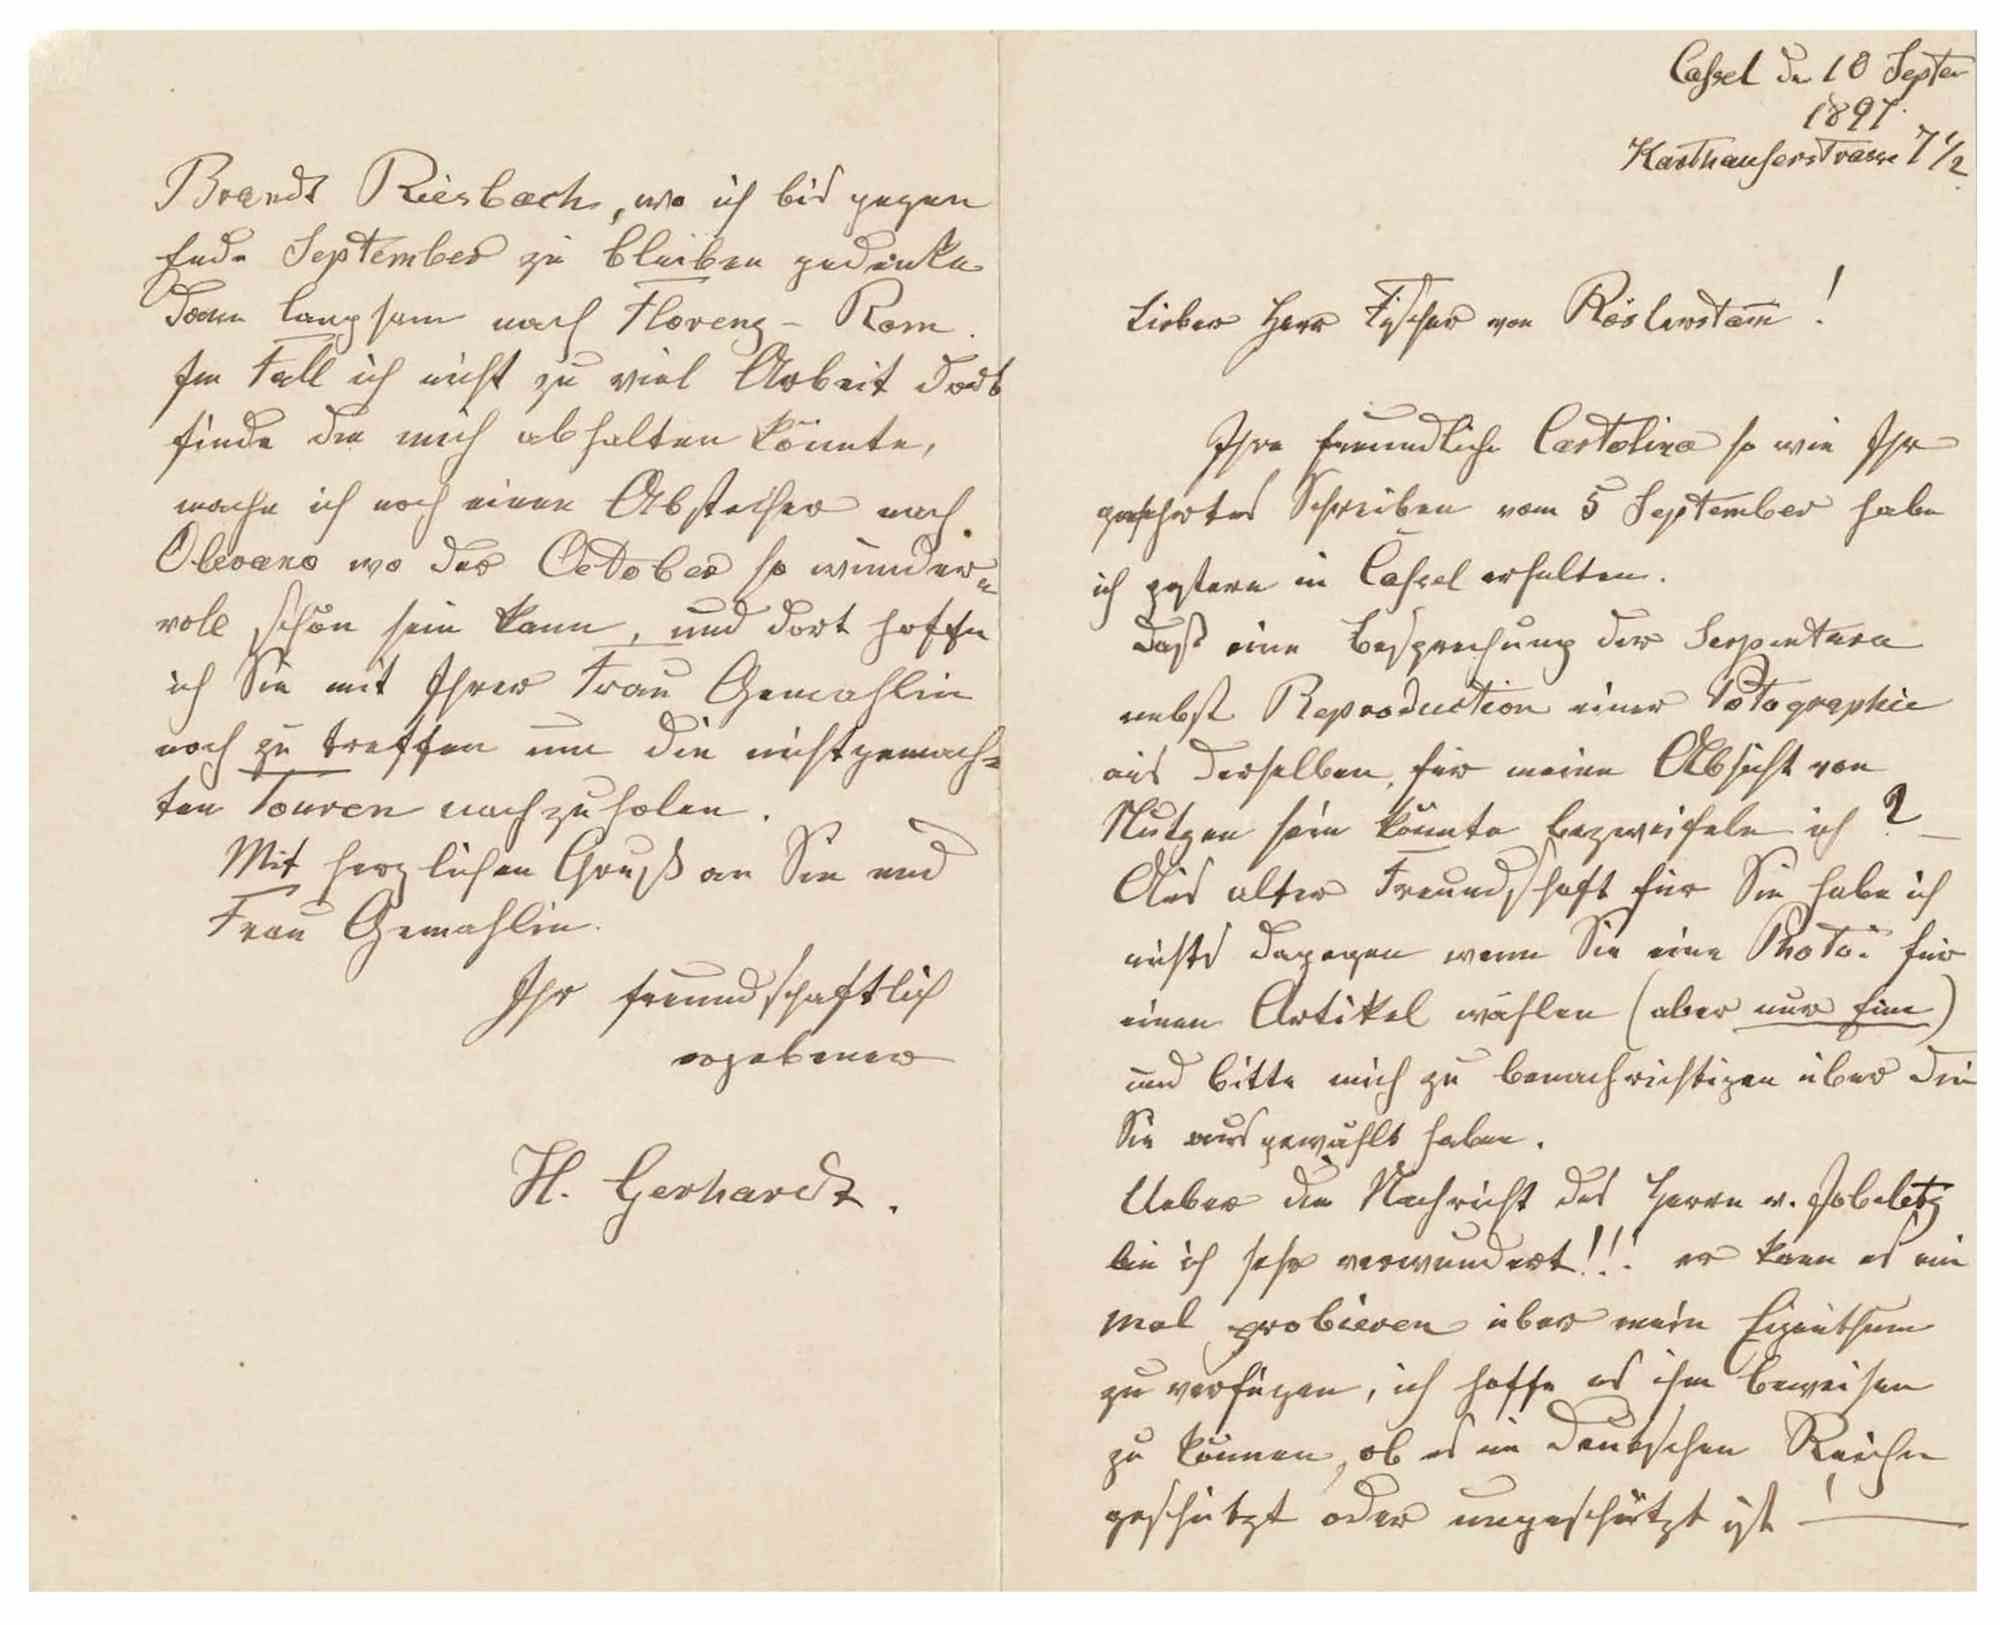 Cassel den 10 Septer
1897.
Karthauserstrasse 7 1/2
Lieber Herr Fischer von Röslerstam̄!
Ihre freundliche Cartolina so wie Ihr
geehrtes Schreiben vom 5 September habe
ich gestern in Cassel erhalten.
Daß eine Besprechung der Serpentara
nebst Reproduction einer Potographie
aus derselben, für meine Absicht von
Nutzen sein könnte bezweifele ich? –
Aus alter Freundschaft für Sie habe ich
nichts dagegen wenn Sie eine Photo: für
einen Artikel wählen (aber nur eine)
und bitte mich zu benachrichtigen über die
Sie ausgewählt haben.
Ueber die Nachricht des Herrn v.
bin ich sehr verwundert!!! er kann es ein
mal probieren über mein Eigenthum
zu verfügen, ich hoffe es ihm beweisen
zu können, ob es im Deutschen Reiche
geschützt oder ungeschützt ist! —
Brandt Riesbach, wo ich bis gegen
Ende September zu bleiben gedenke
dann langsam nach Florenz – Rom.
Im Fall ich nicht zu viel Arbeit dort
finde die mich abhalten könnte,
mache ich noch einen Abstecher nach
Olevano wo der October so wunder=
voll schön sein kann, und dort hoffe
ich Sie mit Ihrer Frau Gemahlin
noch zu treffen um die nichtgemach=
ten Touren nachzuholen.
Mit herzlichen Gruß an Sie und
Frau Gemahlin.
Ihr freundschaftlich
ergebener
H. Gerhardt.